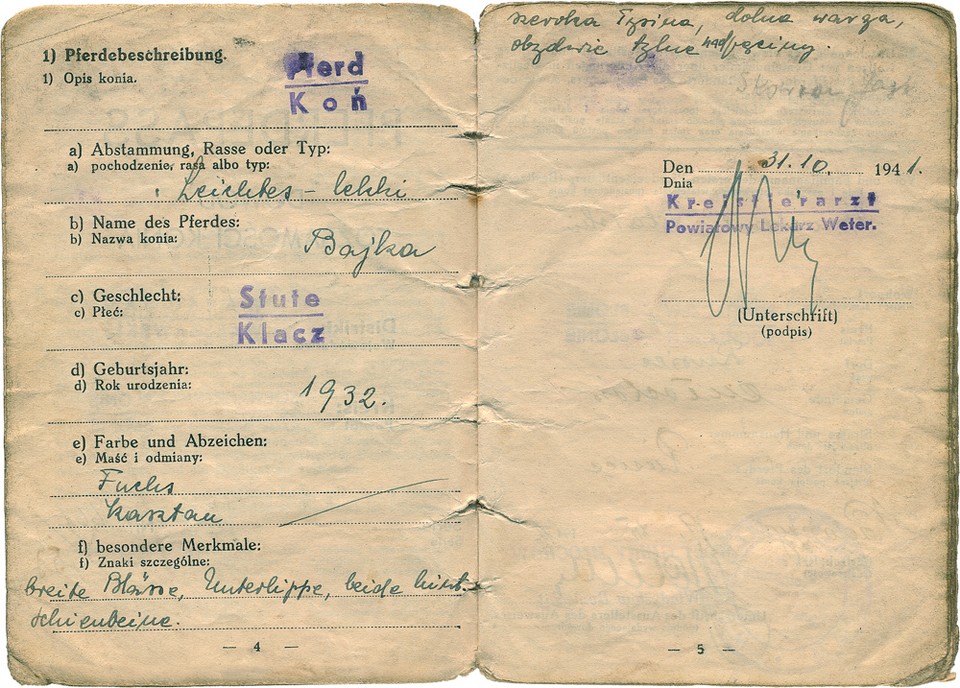 1) Pferdebeschreibung.
1) Opis konia.
Pferd
Koń
a) Abstammung, Rasse oder Typ:
a) pochodzenie, rasa albo typ:
Leichtes – lekki
b) Name des Pferdes:
b) Nazwa konia:
Bajka
c) Geschlecht:
c) Płeć:
Stute
Klacz
d) Geburtsjahr:
d) Rok urodzenia:
1932.
e) Farbe und Abzeichen:
e) Maść i odmiany:
Fuchs
Kasztan
f) besondere Merkmale:
f) Znaki szczególne:
breite Blässe, Unterlippe, beide hint.
Schienbeine.
— 4 —
szeroka łysina, dolna warga,
obydwie tylne nadpęciny.
Den 31.10. 1941.
Dnia
Kreistierarzt
Powiatowy Lekarz Weter.
(Unterschrift)
(podpis)
— 5 —